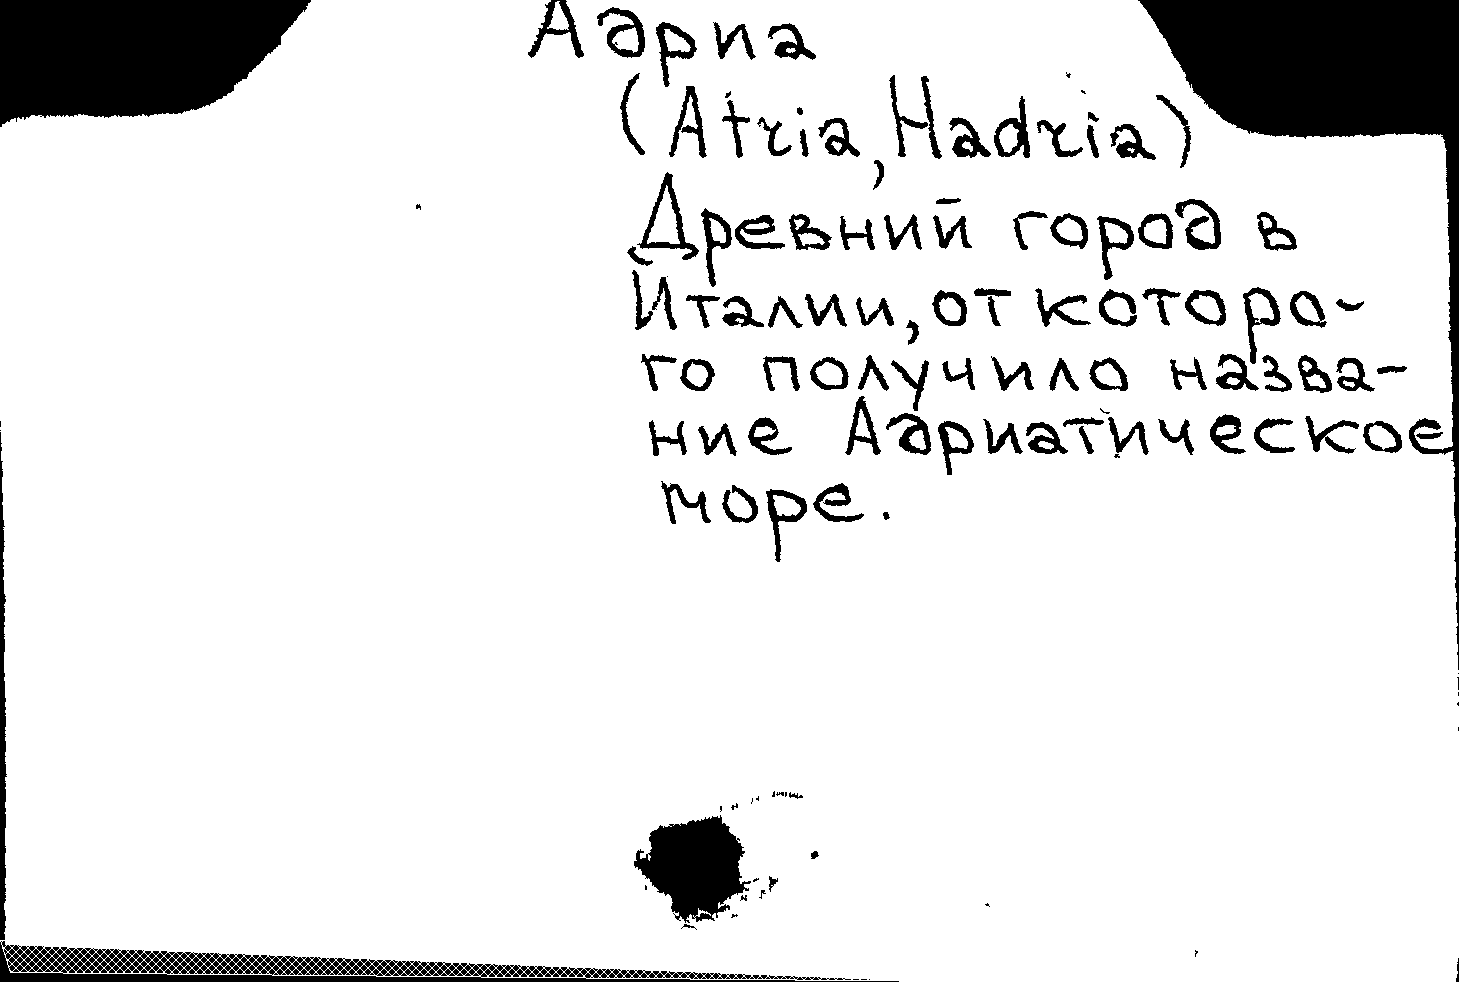 Адриа
(Atria, Hadria)
Древний город в
Италии, от которо-
го получило назва-
ние Адриатическое
море.